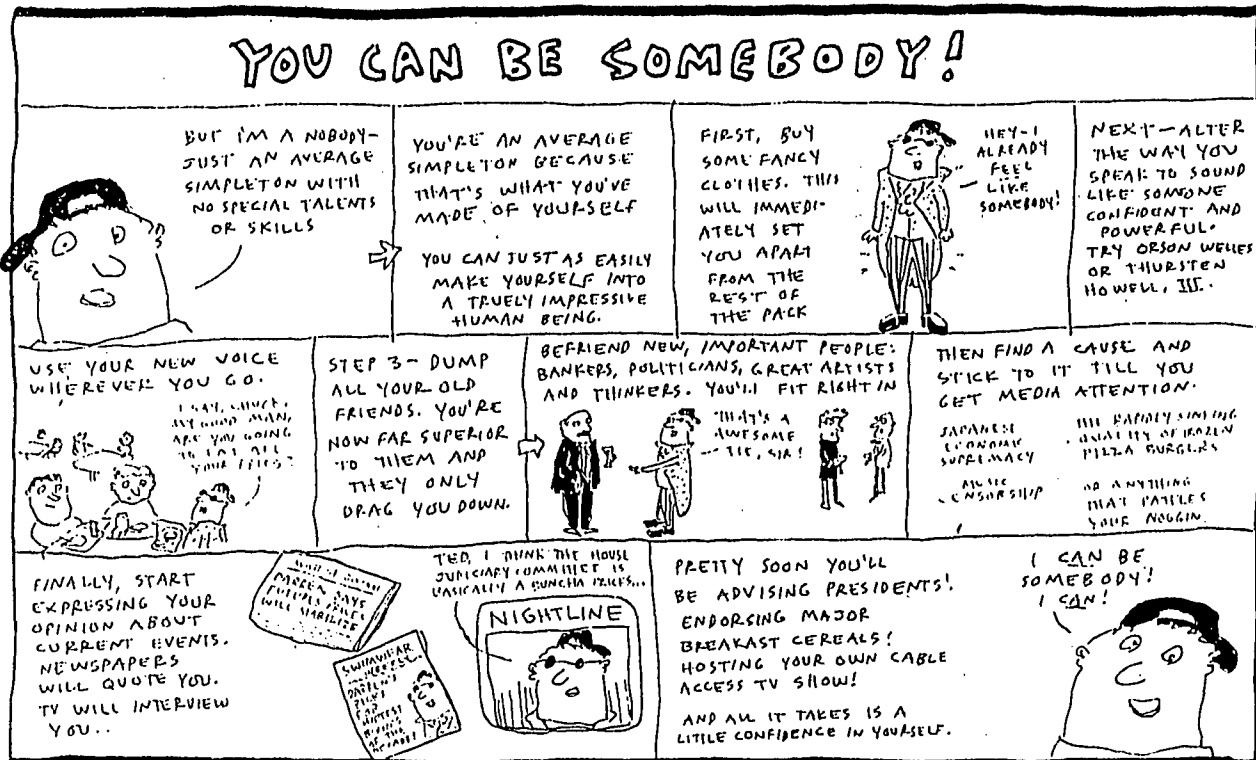 YOU CAN BE SOMEBODY!
BUT I'M A NOBODY-
JUST AN AVERAGE
SIMPLETON WITH
NO SPECIAL TALENTS
OR SKILLS
YOU'RE AN AVERAGE
SIMPLETON BECAUSE
THAT'S WHAT YOU'VE
MADE OF YOURSELF
YOU CAN JUST AS EASILY
MAKE YOURSELF INTO
A TRUELY IMPRESSIVE
HUMAN BEING.
FIRST, BUY
SOME FANCY
CLOTHES. THIS
WILL IMMEDI-
ATELY SET
YOU APART
FROM THE
REST OF
THE PACK
HEY-I
ALREADY
FEEL
LIKE
SOMEBODY!
NEXT-ALTER
THE WAY YOU
SPEAK TO SOUND
LIKE SOMEONE
CONFIDENT AND
POWERFUL.
TRY ORSON WELLES
OR THURSTEN
HOWELL, III.
USE YOUR NEW VOICE
WHEREVER YOU GO.
I SAY, CHUCK,
MY GOOD MAN,
ARE YOU GOING
TO EAT ALL
YOUR FRIES?
STEP 3- DUMP
ALL YOUR OLD
FRIENDS. YOU'RE
NOW FAR SUPERIOR
TO THEM AND
THEY ONLY
DRAG YOU DOWN.
BEFRIEND NEW, IMPORTANT PEOPLE:
BANKERS, POLITICIANS, GREAT ARTISTS
AND THINKERS. YOU'LL FIT RIGHT IN
THAT'S A
AWESOME
TIE, SIR!
THEN FIND A CAUSE AND
STICK TO IT TILL YOU
GET MEDIA ATTENTION.
JAPANESE
ECONOMIC
SUPREMACY
MUSIC
CENSORSHIP
THE RAPIDLY SINKING
QUALITY OF FROZEN
PIZZA BURGERS
OR ANYTHING
THAT RATTLES
YOUR NOGGIN
FINALLY, START
EXPRESSING YOUR
OPINION ABOUT
CURRENT EVENTS.
NEWSPAPERS
WILL QUOTE YOU.
TV WILL INTERVIEW
YOU..
DARREN SAYS
FUTURES PRICES
WILL STABILIZE
SWIMWEAR
DARREN'S
PICKS
FOR
HOTTEST
BIKINIS
OF THE
DECADE!
TED, I THINK THE HOUSE
JUDICIARY COMMITTEE IS
BASICALLY A BUNCHA PRICKS...
NIGHTLINE
PRETTY SOON YOU'LL
BE ADVISING PRESIDENTS!
ENDORSING MAJOR
BREAKAST CEREALS!
HOSTING YOUR OWN CABLE
ACCESS TV SHOW!
AND ALL IT TAKES IS A
LITTLE CONFIDENCE IN YOURSELF.
I CAN BE
SOMEBODY!
I CAN!